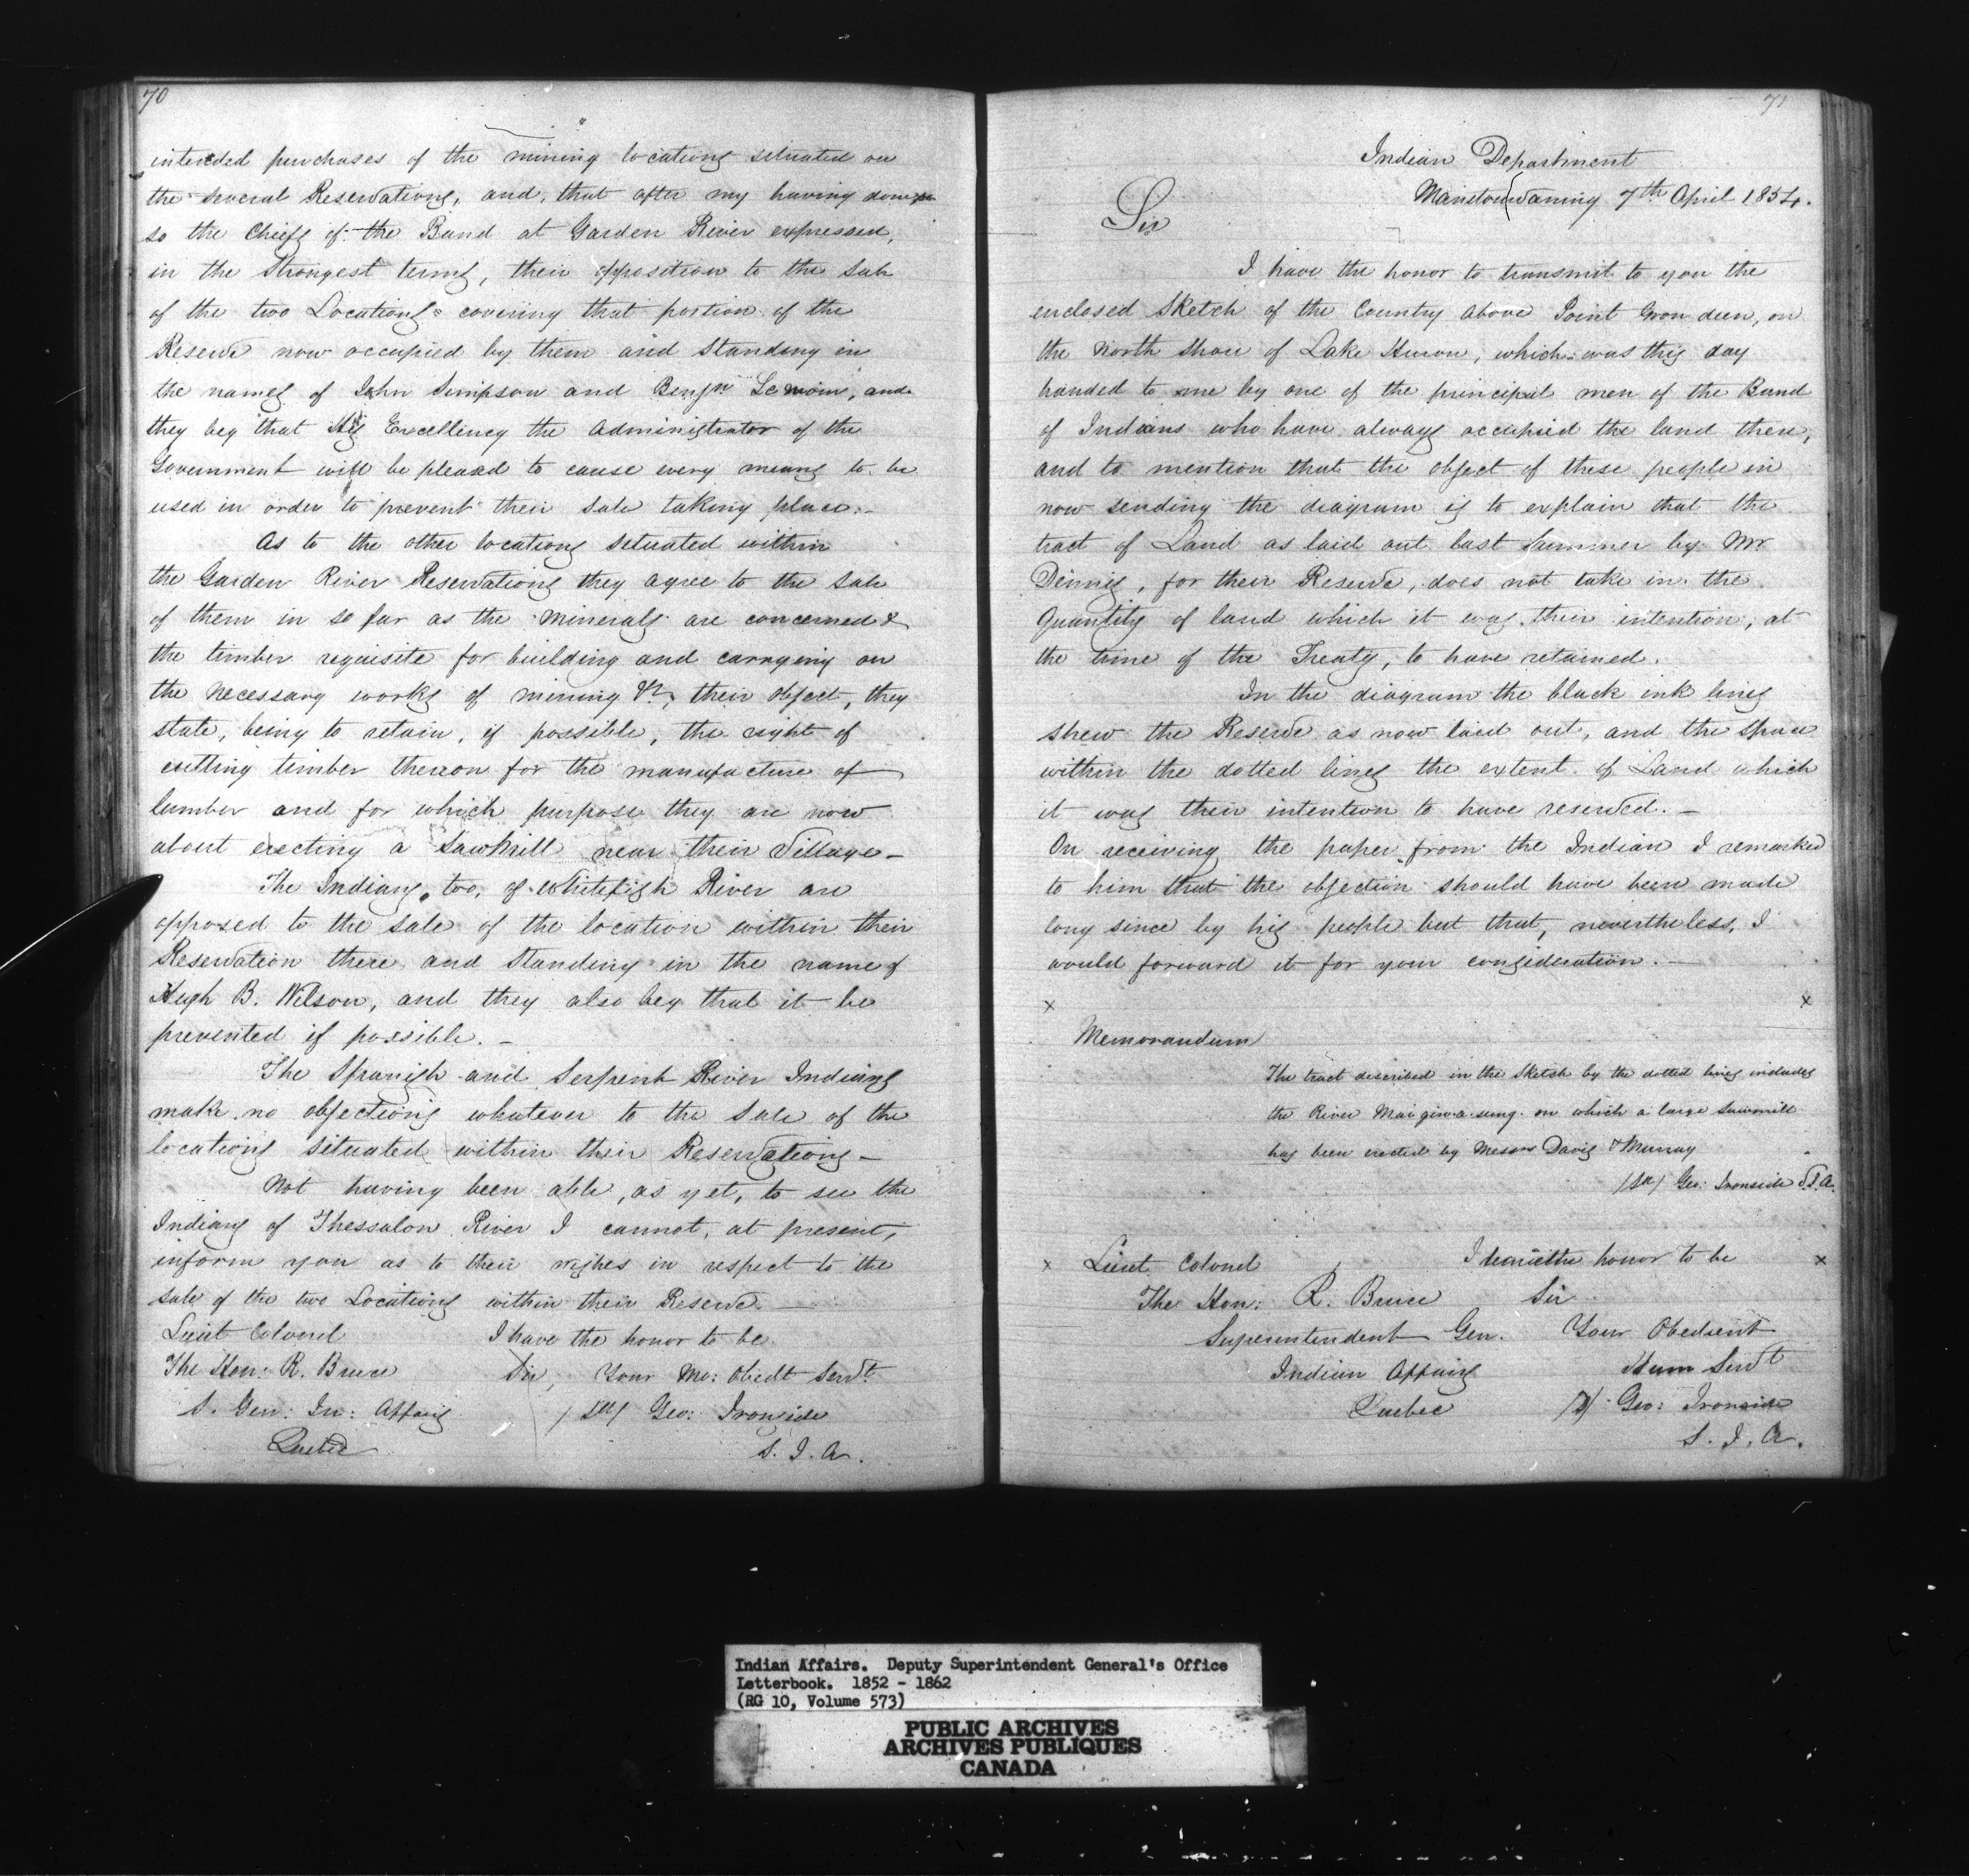 70
intended purchases of the mining locations situated on
the several Reservations, and, that after my having done
so the Chiefs of the Band at Garden River expressed,
in the Strongest terms, their opposition to the Sale
of the two Locations covering that portion of the
Reserve now occupied by them and Standing in
the names of John Simpson and Benjn and
they beg that His Excellency the Administrator of the
Government will be pleased to cause every means to be
used in order to prevent their Sale taking place.-
As to the other locations Situated within
the Garden River Reservations they agree to the Sale
of them in so far as the minerals are concerned &
the timber requisite for building and carrying on
the necessary works of mining &c, their object, they
state, being to retain, if possible, the right of
cutting timber thereon for the manufacture of
lumber and for which purpose they are now
about erecting a Sawmill near their Village-
The Indians, too, of Whitefish River are
opposed to the Sale of the location within their
Reservation there and Standing in the name of
Hugh B. Wilson, and they also beg that it be
prevented if possible. -
The Spanish and Serpent River Indians
make no objections whatever to the Sale of the
locations situated within their Reservations-
Not having been able, as yet, to see the
Indians of Thessalon River I cannot, at present,
inform you as to their wishes in respect to the
Sale of the two Locations within their Reserve. -
Lieut Colonel I have the honor to be
The Hon: R. Bruce Sir, Your Mo: Obedt Servt
S. Gen: In: Affairs /Sd/ Geo: Ironside
Quebec S. I. A.
71
Indian Department
Manitouwaning 7th April 1854.
Sir
I have the honor to transmit to you the
enclosed Sketch of the Country above Point Grondeen, on
the North Shore of Lake Huron, which was this day
handed to me by one of the principal men of the Band
of Indians who have always occupied the land there,
and to mention that the object of these people in
now sending the diagram is to explain that the
tract of Land as laid out last Summer by Mr
Dennis, for their Reserve, does not take in the
Quantity of land which it was their intention, at
the time of the Treaty, to have retained.
In the diagram the black ink lines
shew the Reserve as now laid out, and the Space
within the dotted lines the extent of Land which
it was their intention to have reserved. -
On receiving the paper from the Indian I remarked
to him that the objection should have been made
long since by his people but that, nevertheless, I
would forward it for your consideration. -
x x
Memorandum
The tract described in the Sketch by the dotted lines includes
the River on which a large Sawmill
has been erected by Messrs Davis & Murray
/Sd/ Geo: Ironside S.I.A.
x Lieut Colonel I have the honor to be x
The Hon: R. Bruce Sir
Superintendent Gen. Your Obedient
Indian Affairs Hum Servt
Quebec /S/ Geo: Ironside
S. I. A.
Indian Affairs. Deputy Superintendent General's Office
Letterbook. 1852 - 1862
(RG 10, Volume 573)
PUBLIC ARCHIVES
ARCHIVES PUBLIQUES
CANADA